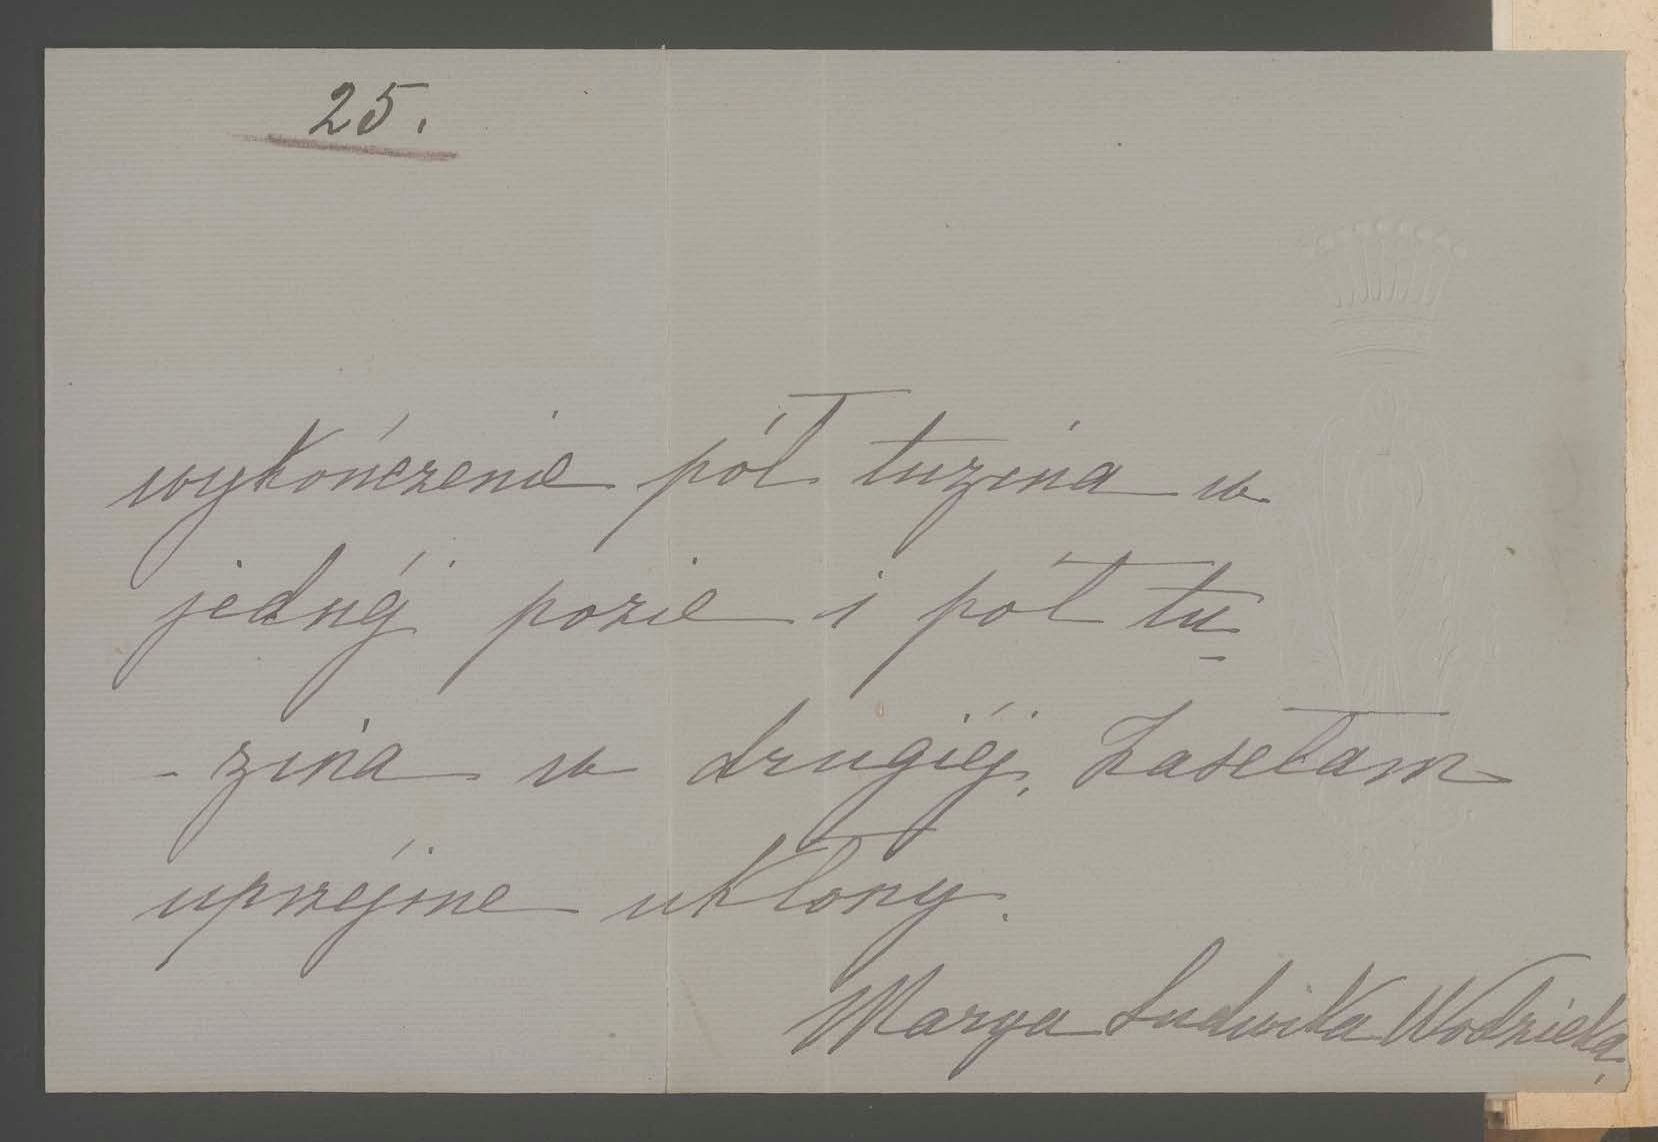 25.
wykończenie pół tuzina w
jednéj pozie i pół tu
- zina w drugiéj. Zasełam
uprzéjme ukłony.
Marya Ludwika Wodzicka